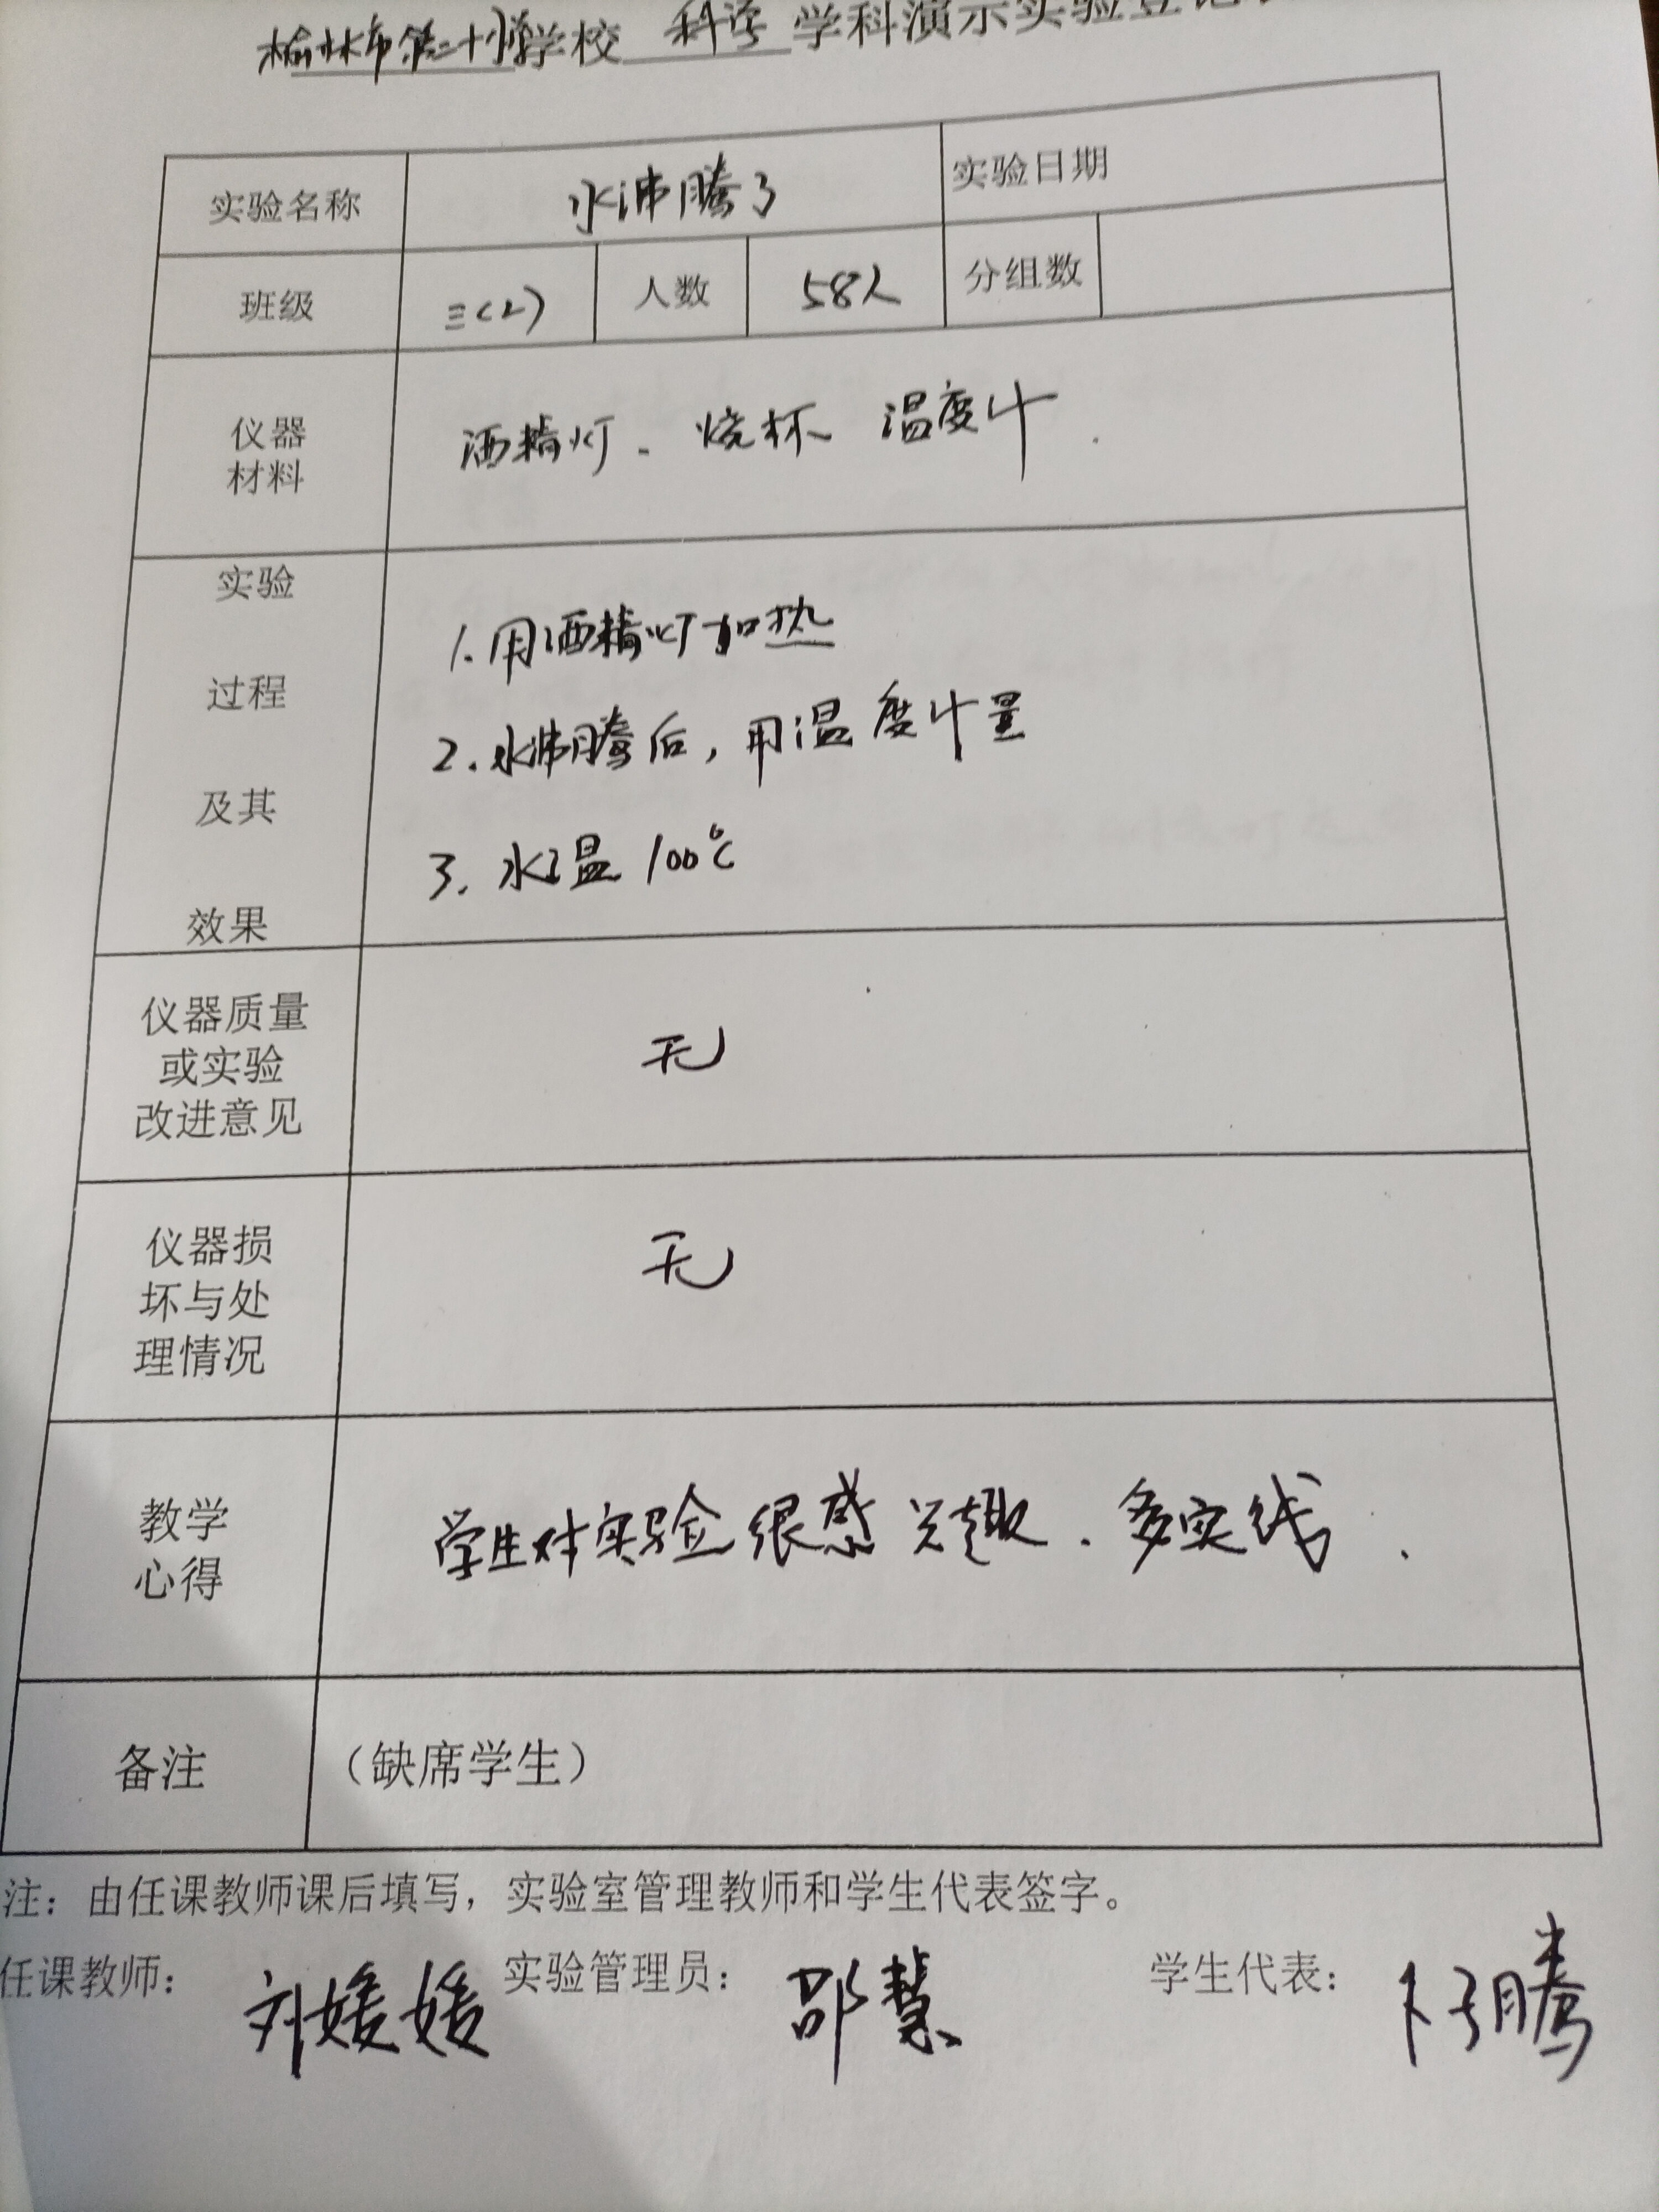 榆林市第二十小学学校 科学 学科演示实验登记
实验名称 水沸腾了 实验日期
班级 三(2) 人数 58人 分组数
仪器
材料
洒精灯、烧杯、温度计.
实验
过程
及其
效果
1.用洒精灯加热
2.水沸腾后,用温度计量
3.水温100℃
仪器质量
或实验
改进意见
无
仪器损
坏与处
理情况
无
教学
心得
学生对实验很感兴趣.多实践.
备注 (缺席学生)
注:由任课教师课后填写,实验室管理教师和学生代表签字。
任课教师: 刘媛媛 实验管理员: 邵慧 学生代表: